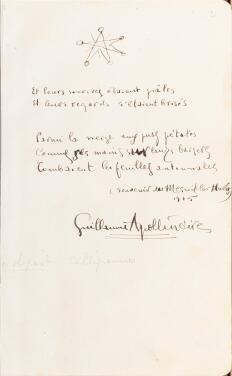 Et leurs sourires étaient pâles
Et leurs regards s'étaient brisés
Parmi la neige aux purs pétales
Comme mains sur leurs baisers
Tombaient les feuilles automnales
(souvenir du Mesnil les Hurlus)
1915
Guillaume Apollinaire
départ Calligrammes